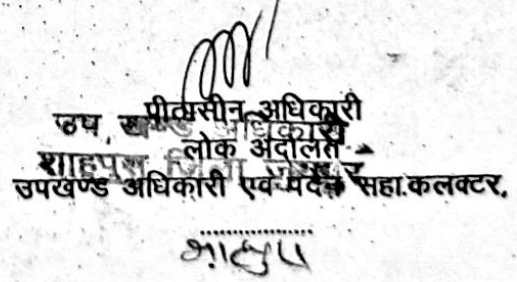 पीठासीन अधिकारी
उप खण्ड अधिकारी
लोक अदालत
शाहपुरा जिला
उपखण्ड अधिकारी एवं पदेन सहा.कलक्टर,
..................
शाहपुरा